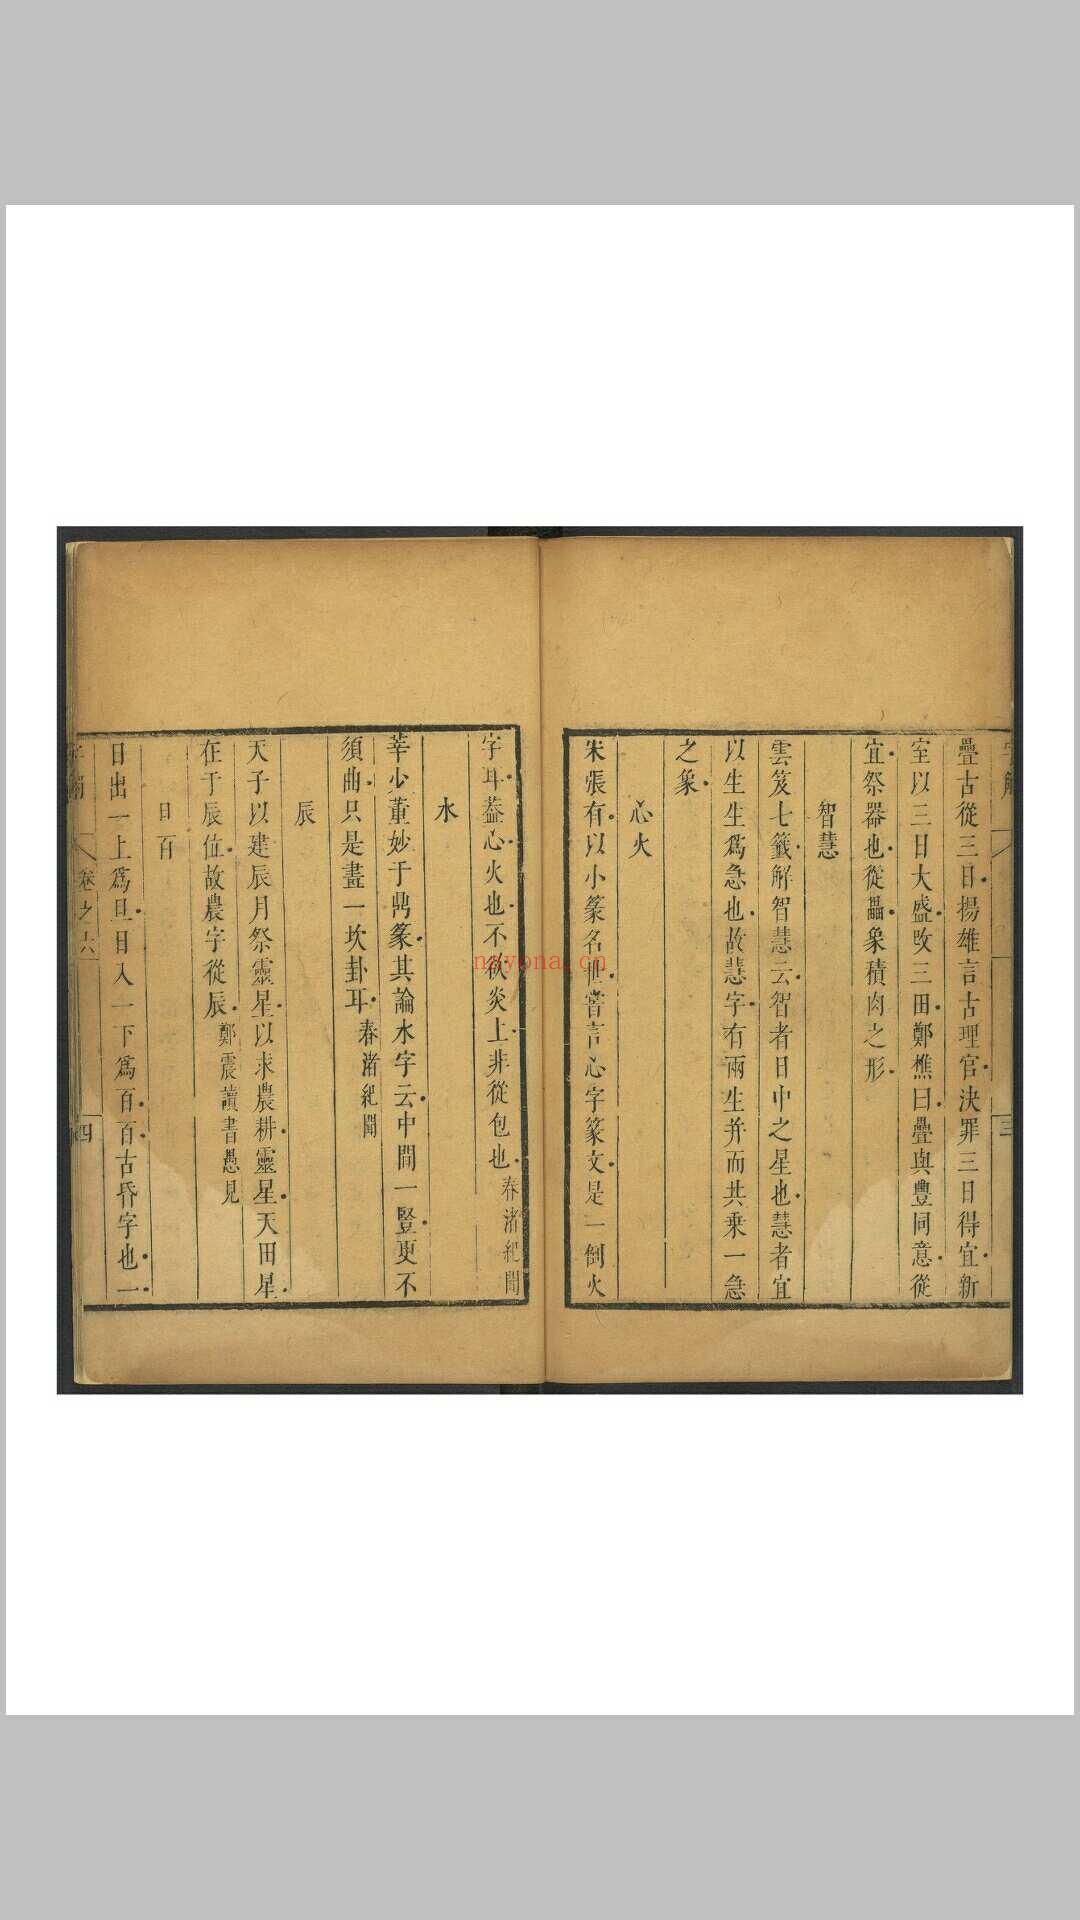 疊古從三日揚雄言古理官決罪三日得宜新
室以三日大盛改三田鄭樵曰疊與豊同意從
宜祭器也從畾象積肉之形
智慧
雲笈七籤解智慧云智者日中之星也慧者宜
以生生爲急也故慧字有兩生并而共乗一急
之象
心火
宋張有以小篆名世嘗言心字篆文是一倒火
字耳葢心火也不欲炎上非從包也春渚紀聞
水
莘少董妙于鼎篆其論水字云中間一竪更不
須曲只是畫一坎卦耳春渚紀聞
辰
天子以建辰月祭靈星以求農耕靈星天田星
在于辰位故農字從辰鄭震讀書愚見
日百
日出一上爲旦日入一下爲百百古昏字也一
卷之六
四
三
nayona.cn